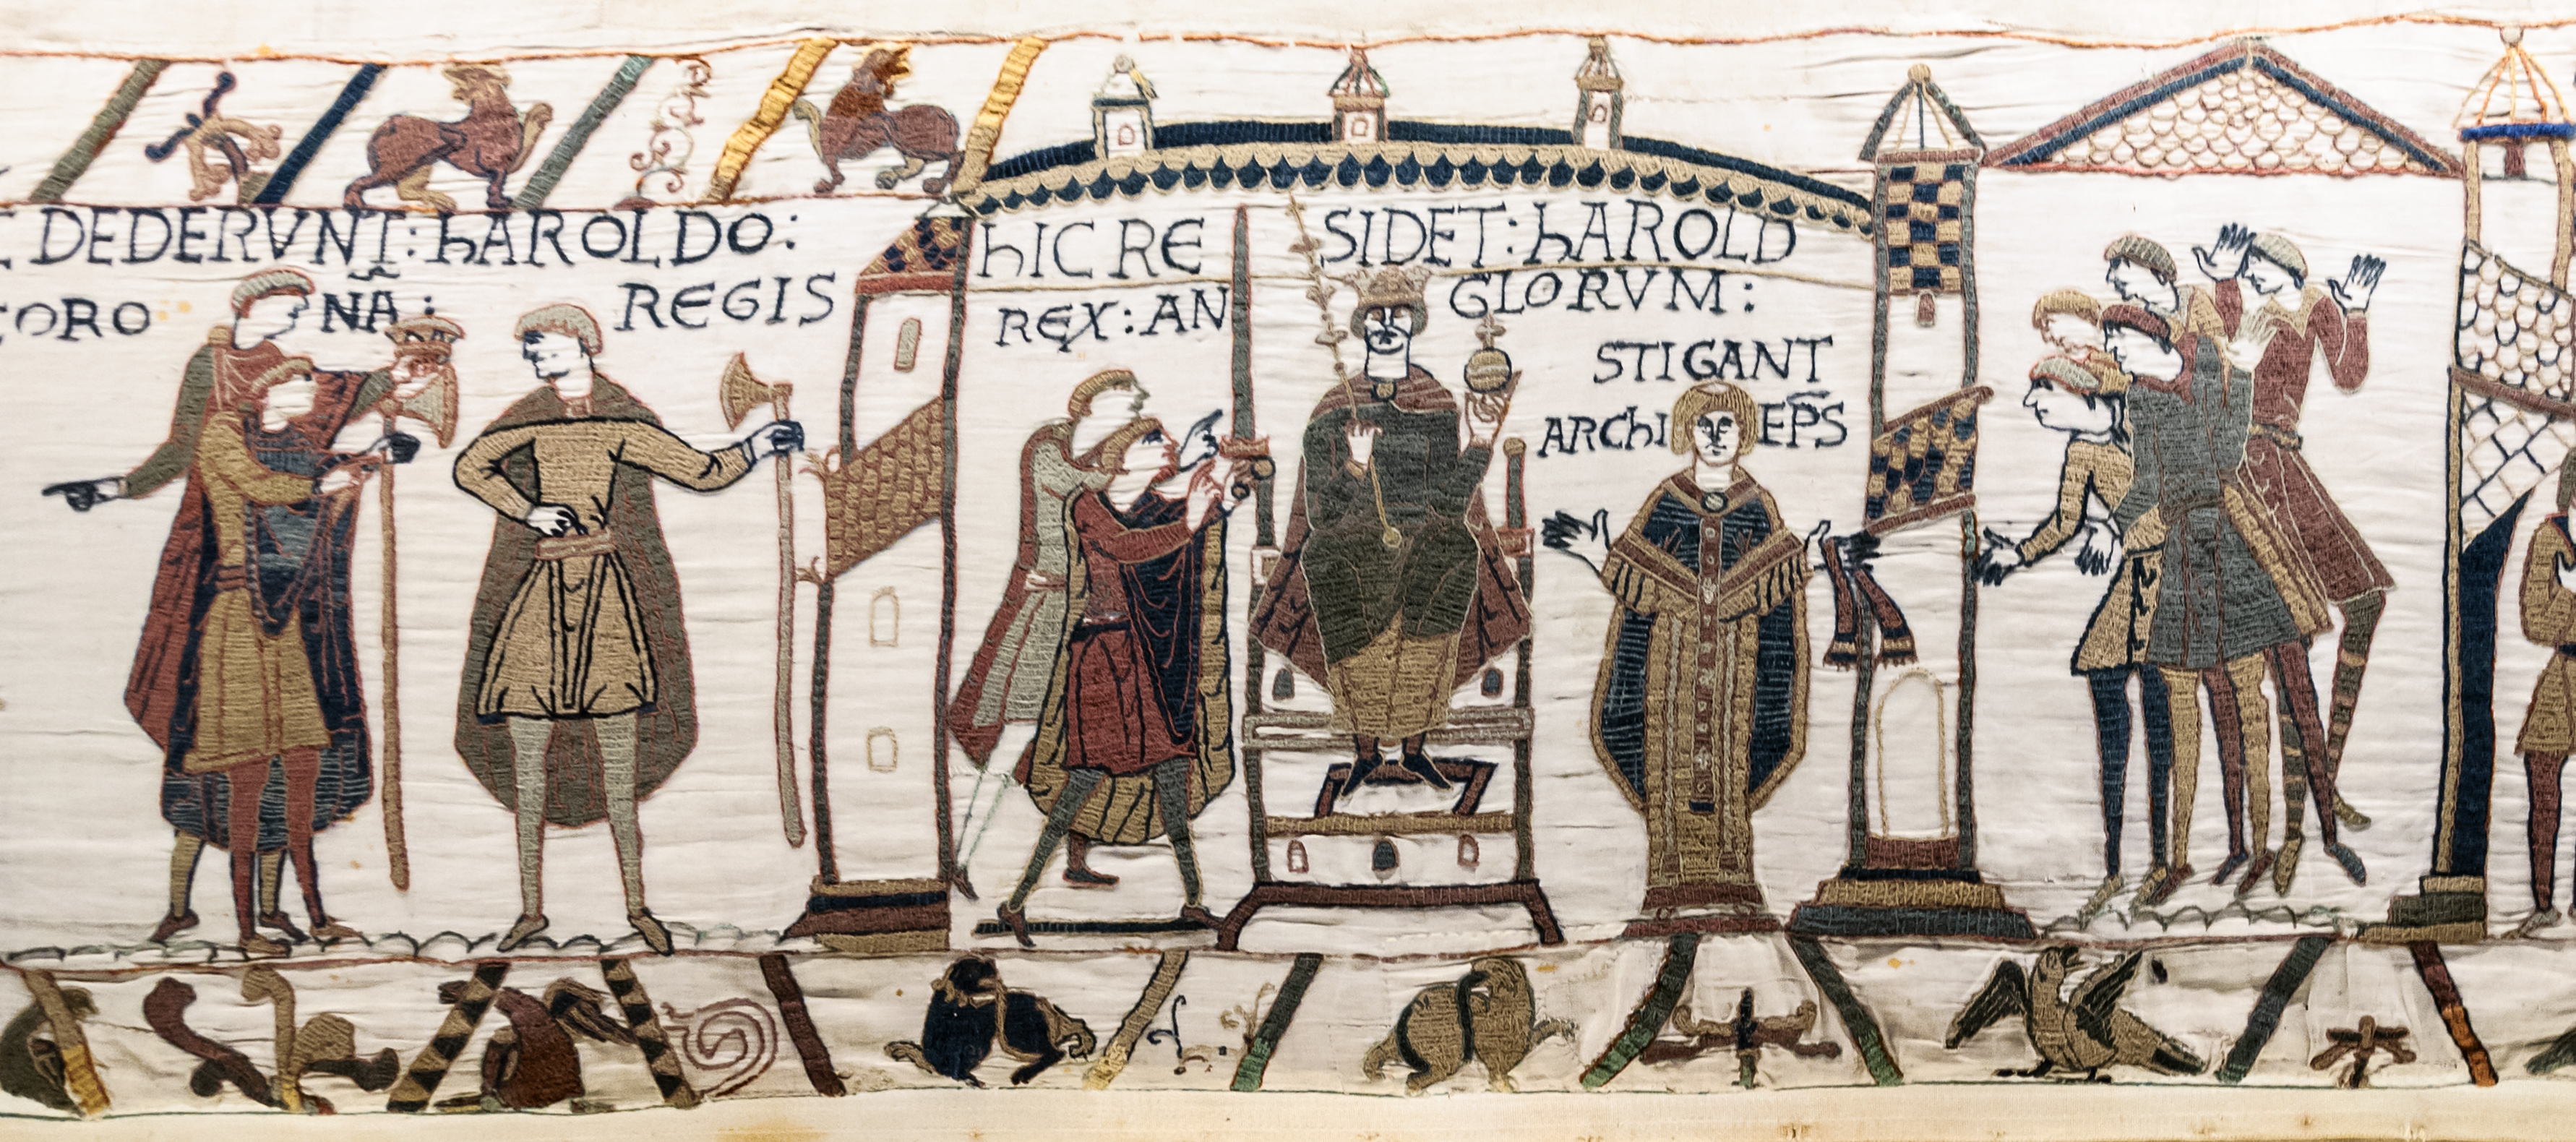 DEDERVNT : hAROLDO :
CORO NA : REGIS
hIC RE SIDET : hAROLD
REX : AN GLORVM :
STIGANT
ARChI EPS